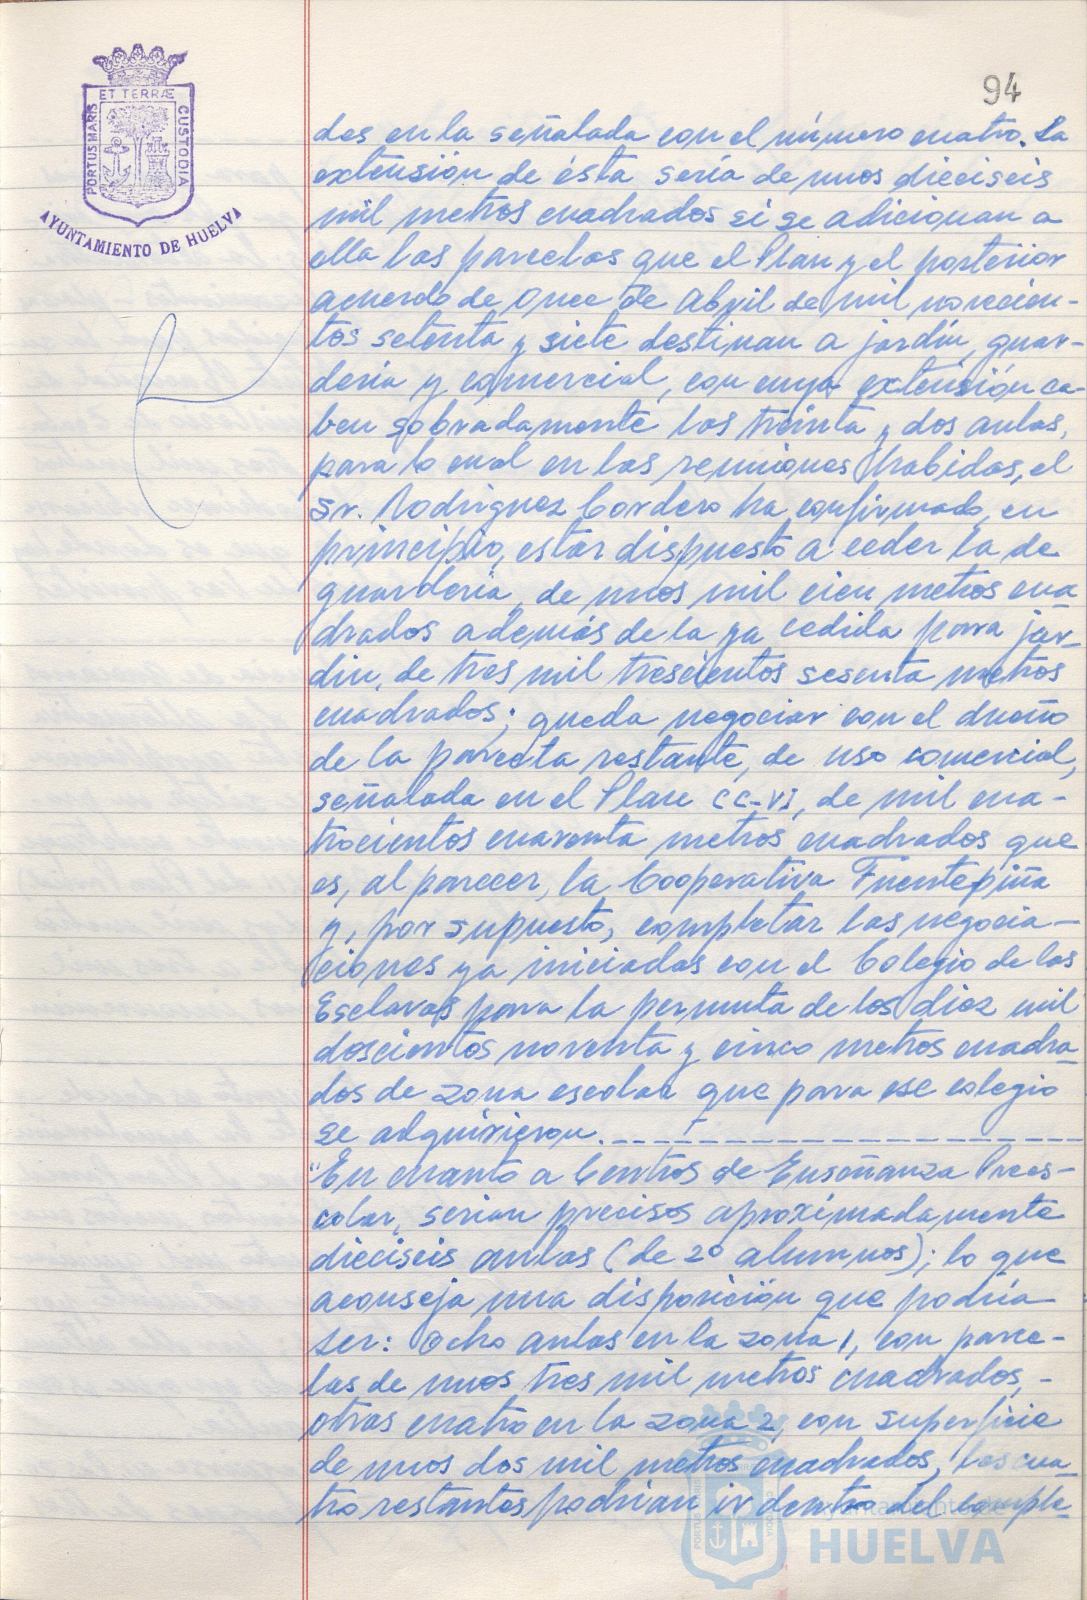 ET TERRÆ
PORTUS MARIS
CUSTODIA
AYUNTAMIENTO DE HUELVA
94
dos en la señalada con el número cuatro. La
extensión de ésta sería de unos dieciseis
mil metros cuadrados si se adicionan a
ella las parcelas que el Plan y el posterior
acuerdo de once de Abril de mil novecien-
tos setenta y siete destinan a jardín, guar-
dería y comercial, con cuya extensión ca-
ben sobradamente las treinta y dos aulas,
para lo cual en las reuniones habidas, el
Sr. Rodríguez Cordero ha confirmado, en
principio, estar dispuesto a ceder la de
guardería, de unos mil cien metros cua
drados además de la ya cedida para jar-
din, de tres mil trescientos sesenta metros
cuadrados; queda negociar con el dueño
de la parcela restante, de uso comercial,
señalada en el Plan CC-VI, de mil cua-
trocientos cuarenta metros cuadrados que
es, al parecer, la Cooperativa Fuentepiña
y, por supuesto, completar las negocia-
ciones ya iniciadas con el Colegio de las
Esclavas para la permuta de los diez mil
doscientos noventa y cinco metros cuadra-
dos de zona escolar que para ese colegio
se adquirieron.
"En cuanto a Centros de Enseñanza Prees-
colar, serian precisos aproximadamente
dieciseis aulas (de 20 alumnos); lo que
aconseja una disposición que podría
ser: Ocho aulas en la zona 1, con parce-
las de unos tres mil metros cuadrados, -
otras cuatro en la zona 2, con superficie
de unos dos mil metros cuadrados, las cua-
tro restantes podrían ir dentro del comple-
Ayuntamiento de
HUELVA